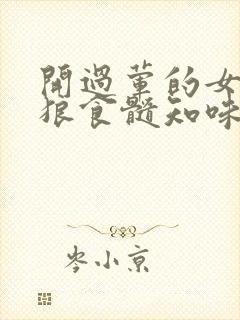 開過葷的女
狠食髓知味
岑小京